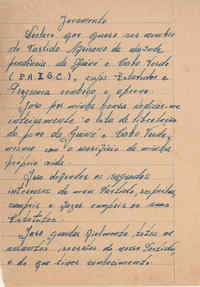 Juramento
Declaro que quero ser membro
do Partido Africano da Independência
pendência da Guiné e Cabo Verde
(P.A.I.G.C.), cujos Estatutos e
Programa conheço e aprovo.
Juro por minha honra
inteiramente à luta de libertação
do povo da Guiné e Cabo Verde,
mesmo com o sacrifício da minha
própria vida.
Juro defender os sagrados
interesses do meu Partido, respeitar,
cumprir e fazer cumprir os seus
Estatutos.
Juro guardar fielmente, todos os
assuntos, segredos do nosso Partido,
e de que tiver conhecimento.